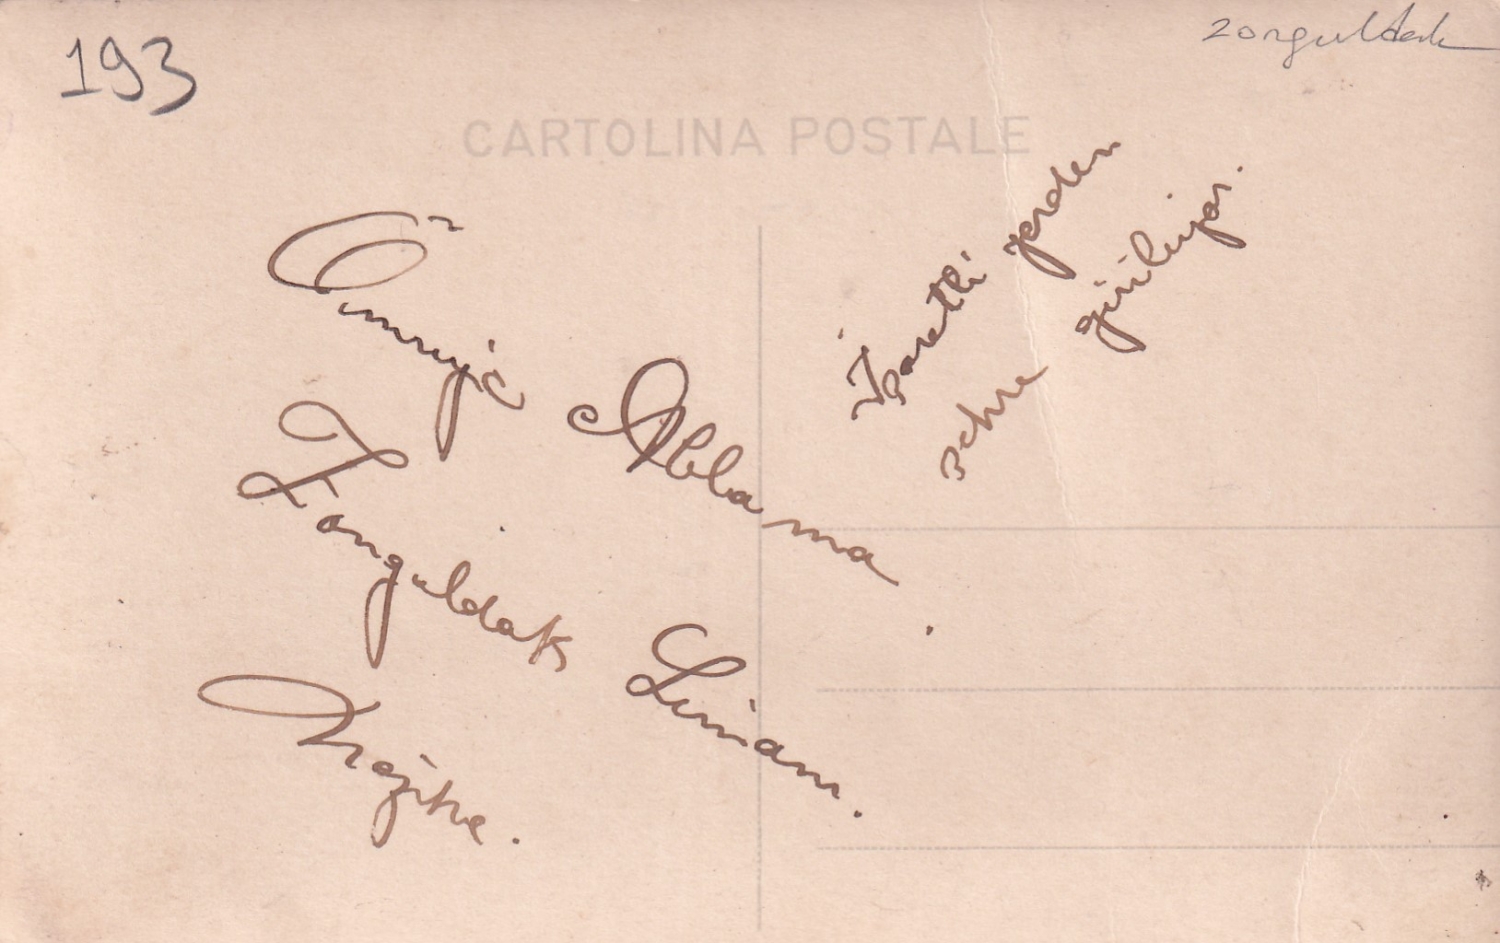 193
zonguldak
CARTOLINA POSTALE
Ablama
Zonguldak Limanı.
İşaretli yerden
şehre giriliyor.